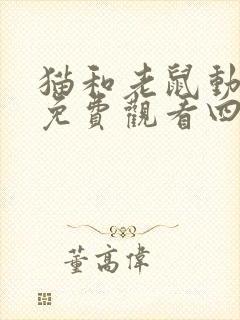 猫和老鼠動
免費觀看四
董高偉